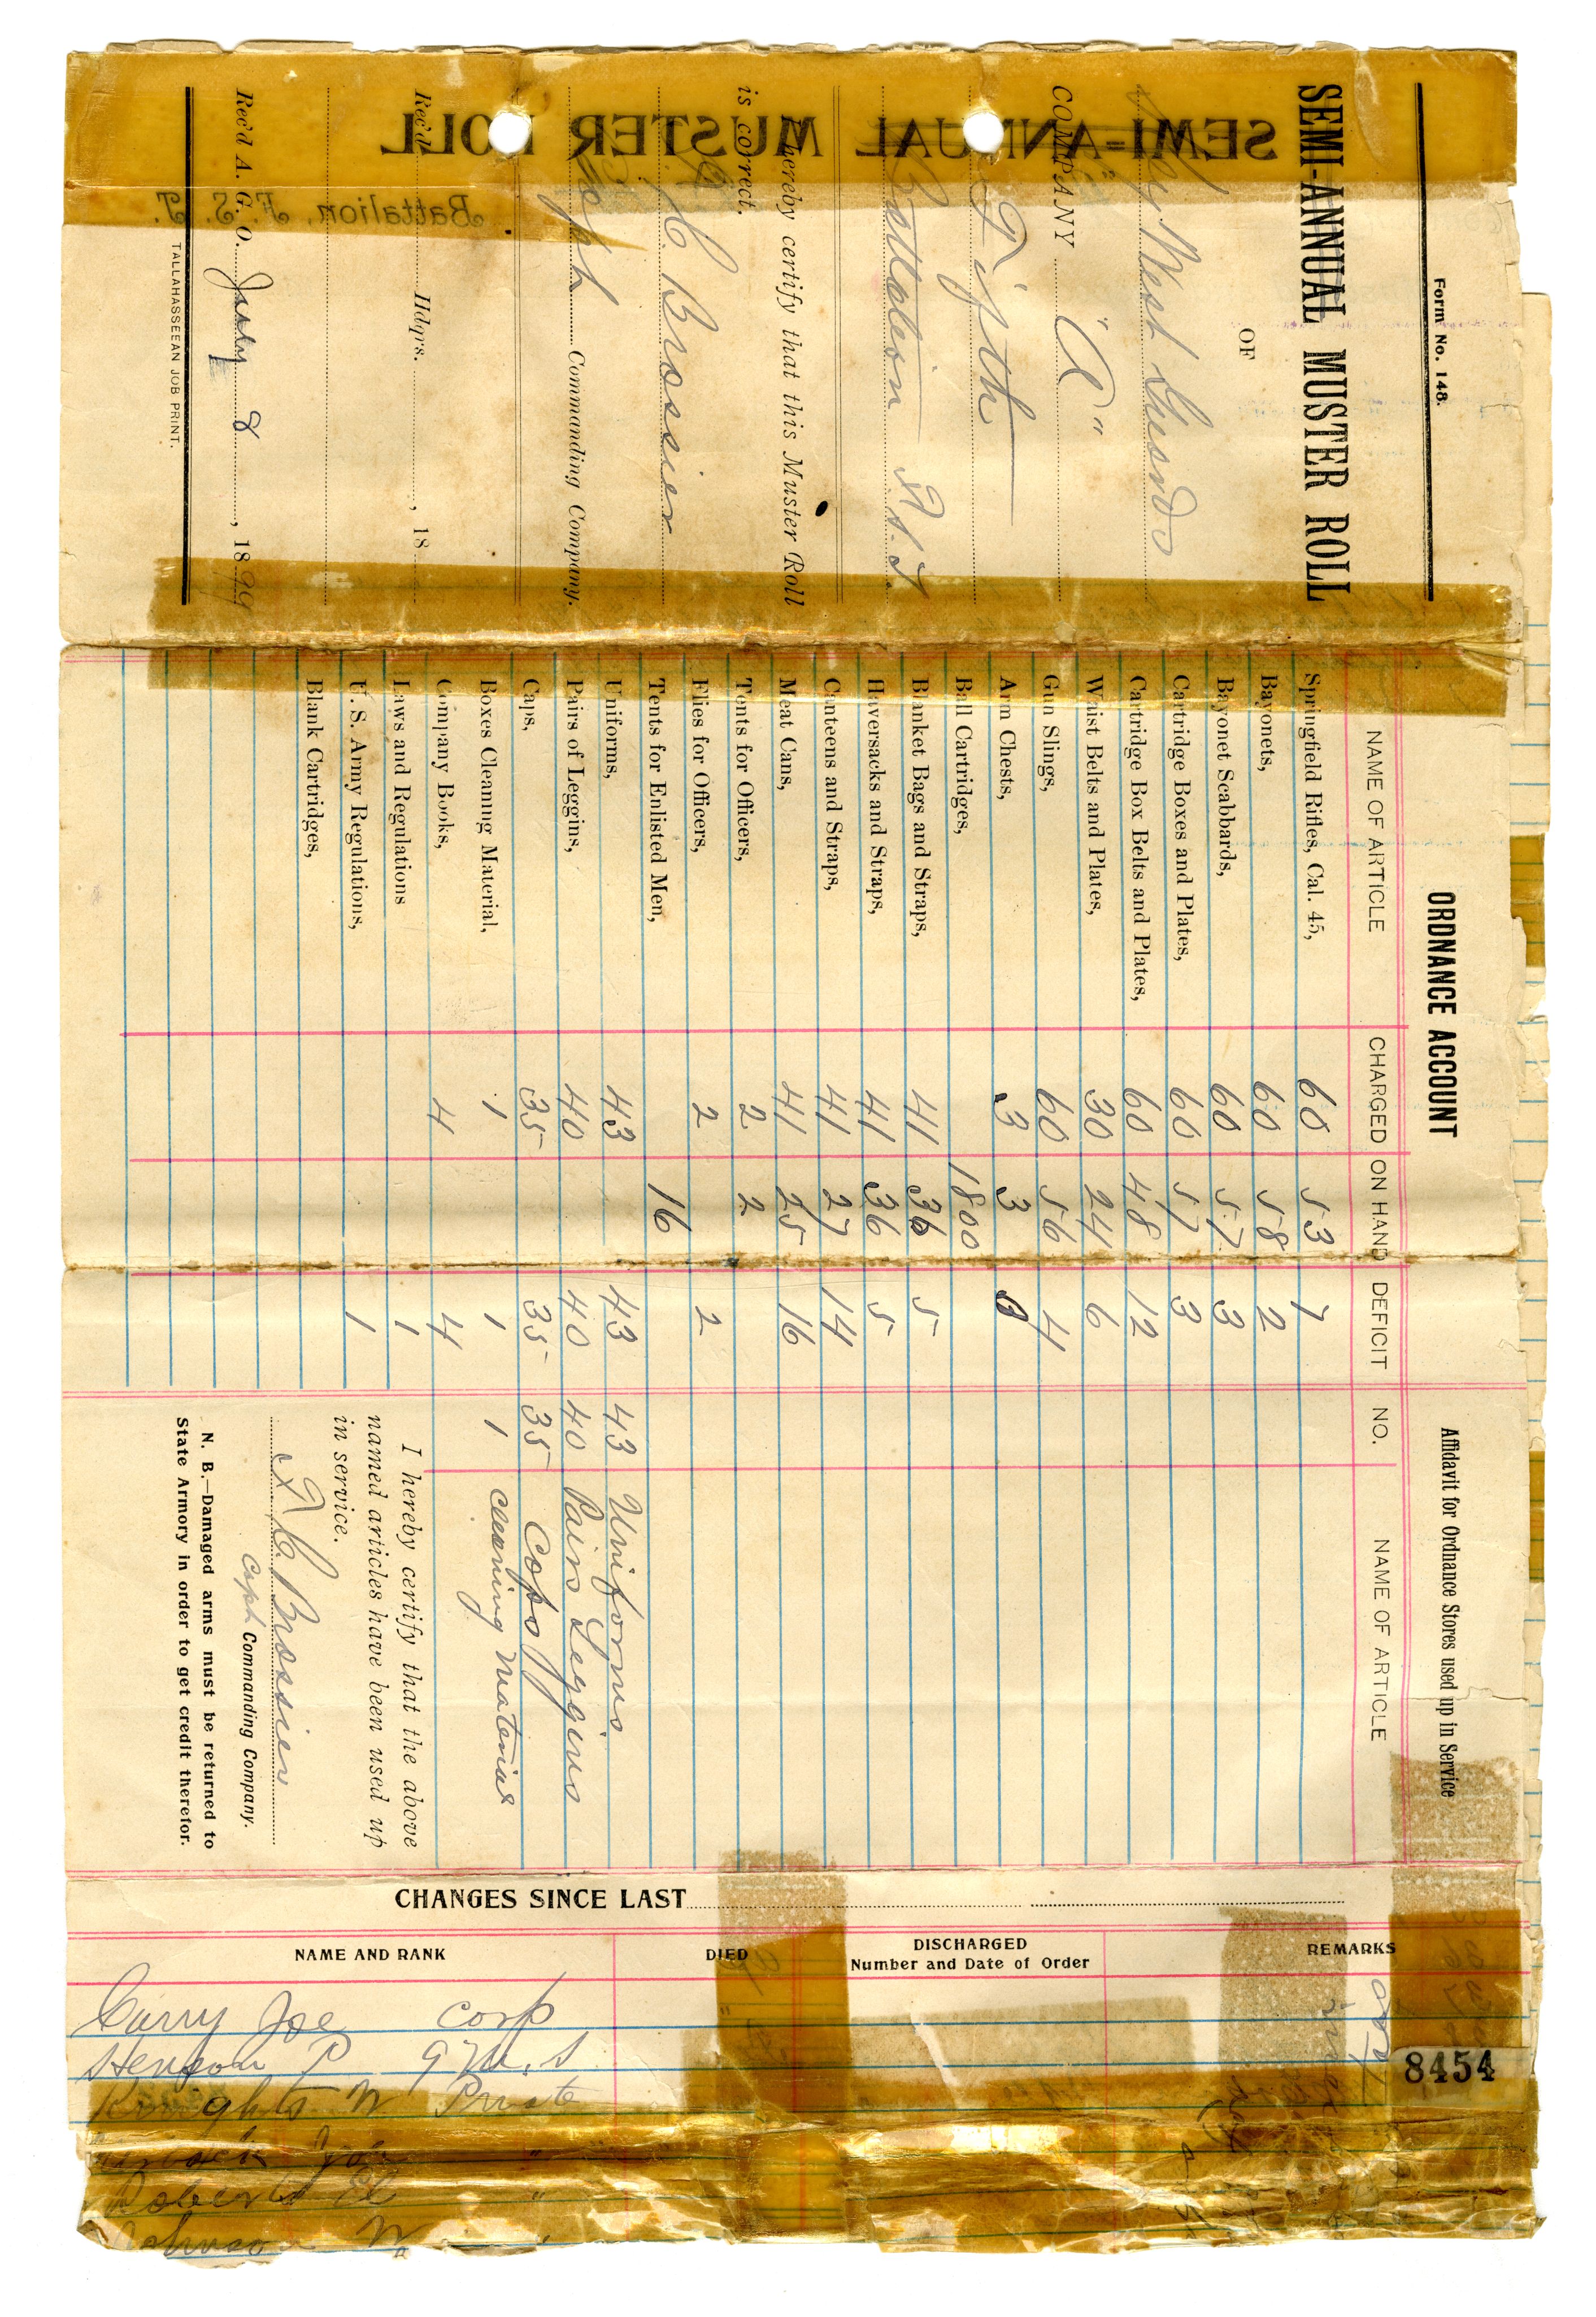 Form No. 148.
SEMI-ANNUAL MUSTER ROLL
OF
Key West Guards
COMPANY "C"
Fifth
Battalion F. S. T.
I hereby certify that this Muster Roll
is correct.
F. C. Brossier
Capt Commanding Company.
Rec'd Hdqrs. , 18
Rec'd A. G. O. July 8 , 1899
TALLAHASSEEAN JOB PRINT.
SEMI-ANNUAL MUSTER ROLL
Battalion, F. S. T.
ORDNANCE ACCOUNT
NAME OF ARTICLE CHARGED ON HAND DEFICIT
Springfield Rifles, Cal. 45, 60 53 7
Bayonets, 60 58 2
Bayonet Scabbards, 60 57 3
Cartridge Boxes and Plates, 60 57 3
Cartridge Box Belts and Plates, 60 48 12
Waist Belts and Plates, 30 24 6
Gun Slings, 60 56 4
Arm Chests, 3 3
Ball Cartridges, 1800
Blanket Bags and Straps, 41 36 5
Haversacks and Straps, 41 36 5
Canteens and Straps, 41 27 14
Meat Cans, 41 25 16
Tents for Officers, 2 2
Flies for Officers, 2 2
Tents for Enlisted Men, 16
Uniforms, 43 43
Pairs of Leggins, 40 40
Caps, 35 35
Boxes Cleaning Material, 1 1
Company Books, 4 4
Laws and Regulations 1
U. S. Army Regulations, 1
Blank Cartridges,
Affidavit for Ordnance Stores used up in Service
NO. NAME OF ARTICLE
43 Uniforms
40 Pairs Leggins
35 Caps
1 cleaning material
I hereby certify that the above
named articles have been used up
in service.
F. C. Brossier
Capt Commanding Company.
N. B.—Damaged arms must be returned to
State Armory in order to get credit therefor.
CHANGES SINCE LAST
NAME AND RANK DIED DISCHARGED Number and Date of Order REMARKS
Curry Joe Corp
P Q M. S
Knights W Private
8454
Roberts "
W "